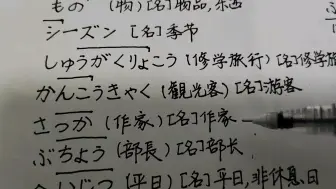 もの (物) [名] 物品, 东西
シーズン [名] 季节
しゅうがくりょこう (修学旅行) [名] 修学
かんこうきゃく (観光客) [名] 游客
さっか (作家) [名] 作家
ぶちょう (部長) [名] 部长
へいじつ (平日) [名] 平日, 非休息日